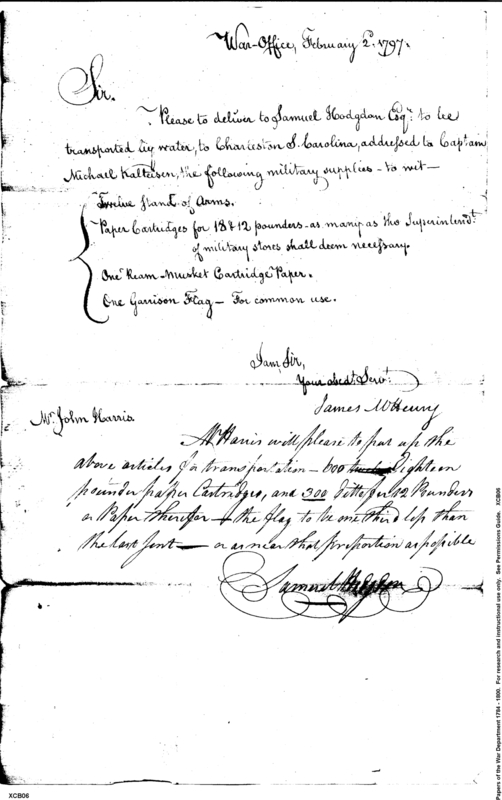 War-Office, February 2d. 1797.
Sir.
Please to deliver to Samuel Hodgdon Esqr. to be
transported by water, to Charleston S. Carolina, addressed to Captain
Michael Kalteisen, the following military supplies - to wit —
Twelve stand of Arms.
Paper Cartridges for 18 & 12 pounders - as many as the Superintendt.
of military stores shall deem necessary.
One Ream - Musket Cartridge Paper.
One Garrison Flag — For common use.
I am, Sir,
Your obedt. Servt.
James McHenry
Mr. John Harris.
Mr Harris will please to put up the
above articles for transportation - 600 Eighteen
pounder paper Cartridges, and 300 ditto for 12 Pounders
or Paper therefor — the flag to be one third less than
the last sent — or as near that proportion as possible
Samuel Hodgdon
XCB06
Papers of the War Department 1784 - 1800. For research and instructional use only. See Permissions Guide. XCB06